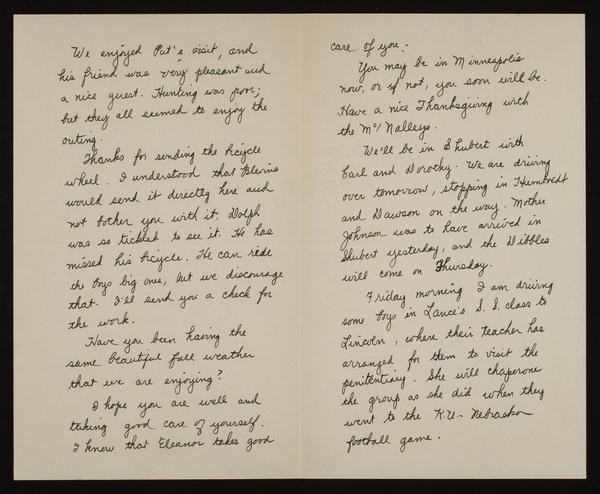 We enjoyed Pat's visit, and
his friend was very pleasant and
a nice guest. Hunting was poor;
but they all seemed to enjoy the
outing.
Thanks for sending the bicycle
wheel. I understood that Blevins
would send it directly here and
not bother you with it. Dolph
was so tickled to see it. He has
missed his bicycle. He can ride
the boys big ones, but we discourage
that. I'll send you a check for
the work.
Have you been having the
same beautiful fall weather
that we are enjoying?
I hope you are well and
taking good care of yourself.
I know that Eleanor takes good
care of you.
You may be in Minneapolis
now, or if not, you soon will be.
Have a nice Thanksgiving with
the McNalleys.
We'll be in Shubert with
Carl and Dorothy. We are driving
over tomorrow, stopping in Humboldt
and Dawson on the way. Mother
Johnson was to have arrived in
Shubert yesterday, and the Dibbles
will come on Thursday.
Friday morning I am driving
some boys in Lance's S. S. class to
Lincoln, where their teacher has
arranged for them to visit the
penitentiary. She will chaperone
the group as she did when they
went to the K.U.- Nebraska
football game.